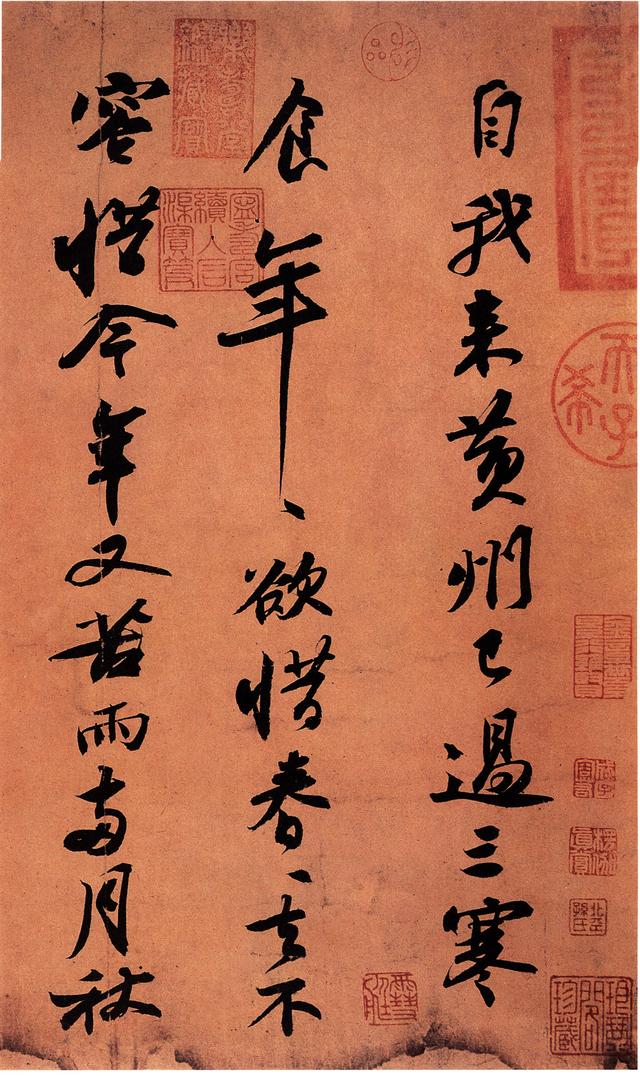 自我来黄州已過三寒
食年、欲惜春、去不
容惜今年又苦雨兩月秋
天子
希